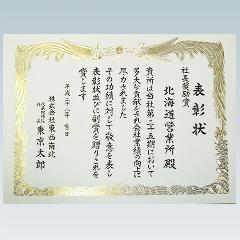 表彰状
社長奨励賞
北海道営業所 殿
貴所は当社第二十五期において
多大な貢献をされ会社業績の向上に
尽力されました
その功績に対して敬意を表し
表彰状並びに副賞を贈りこれを
賞します
平成二十六年 吉日
株式会社東西南北
代表取締役社長 東京太郎